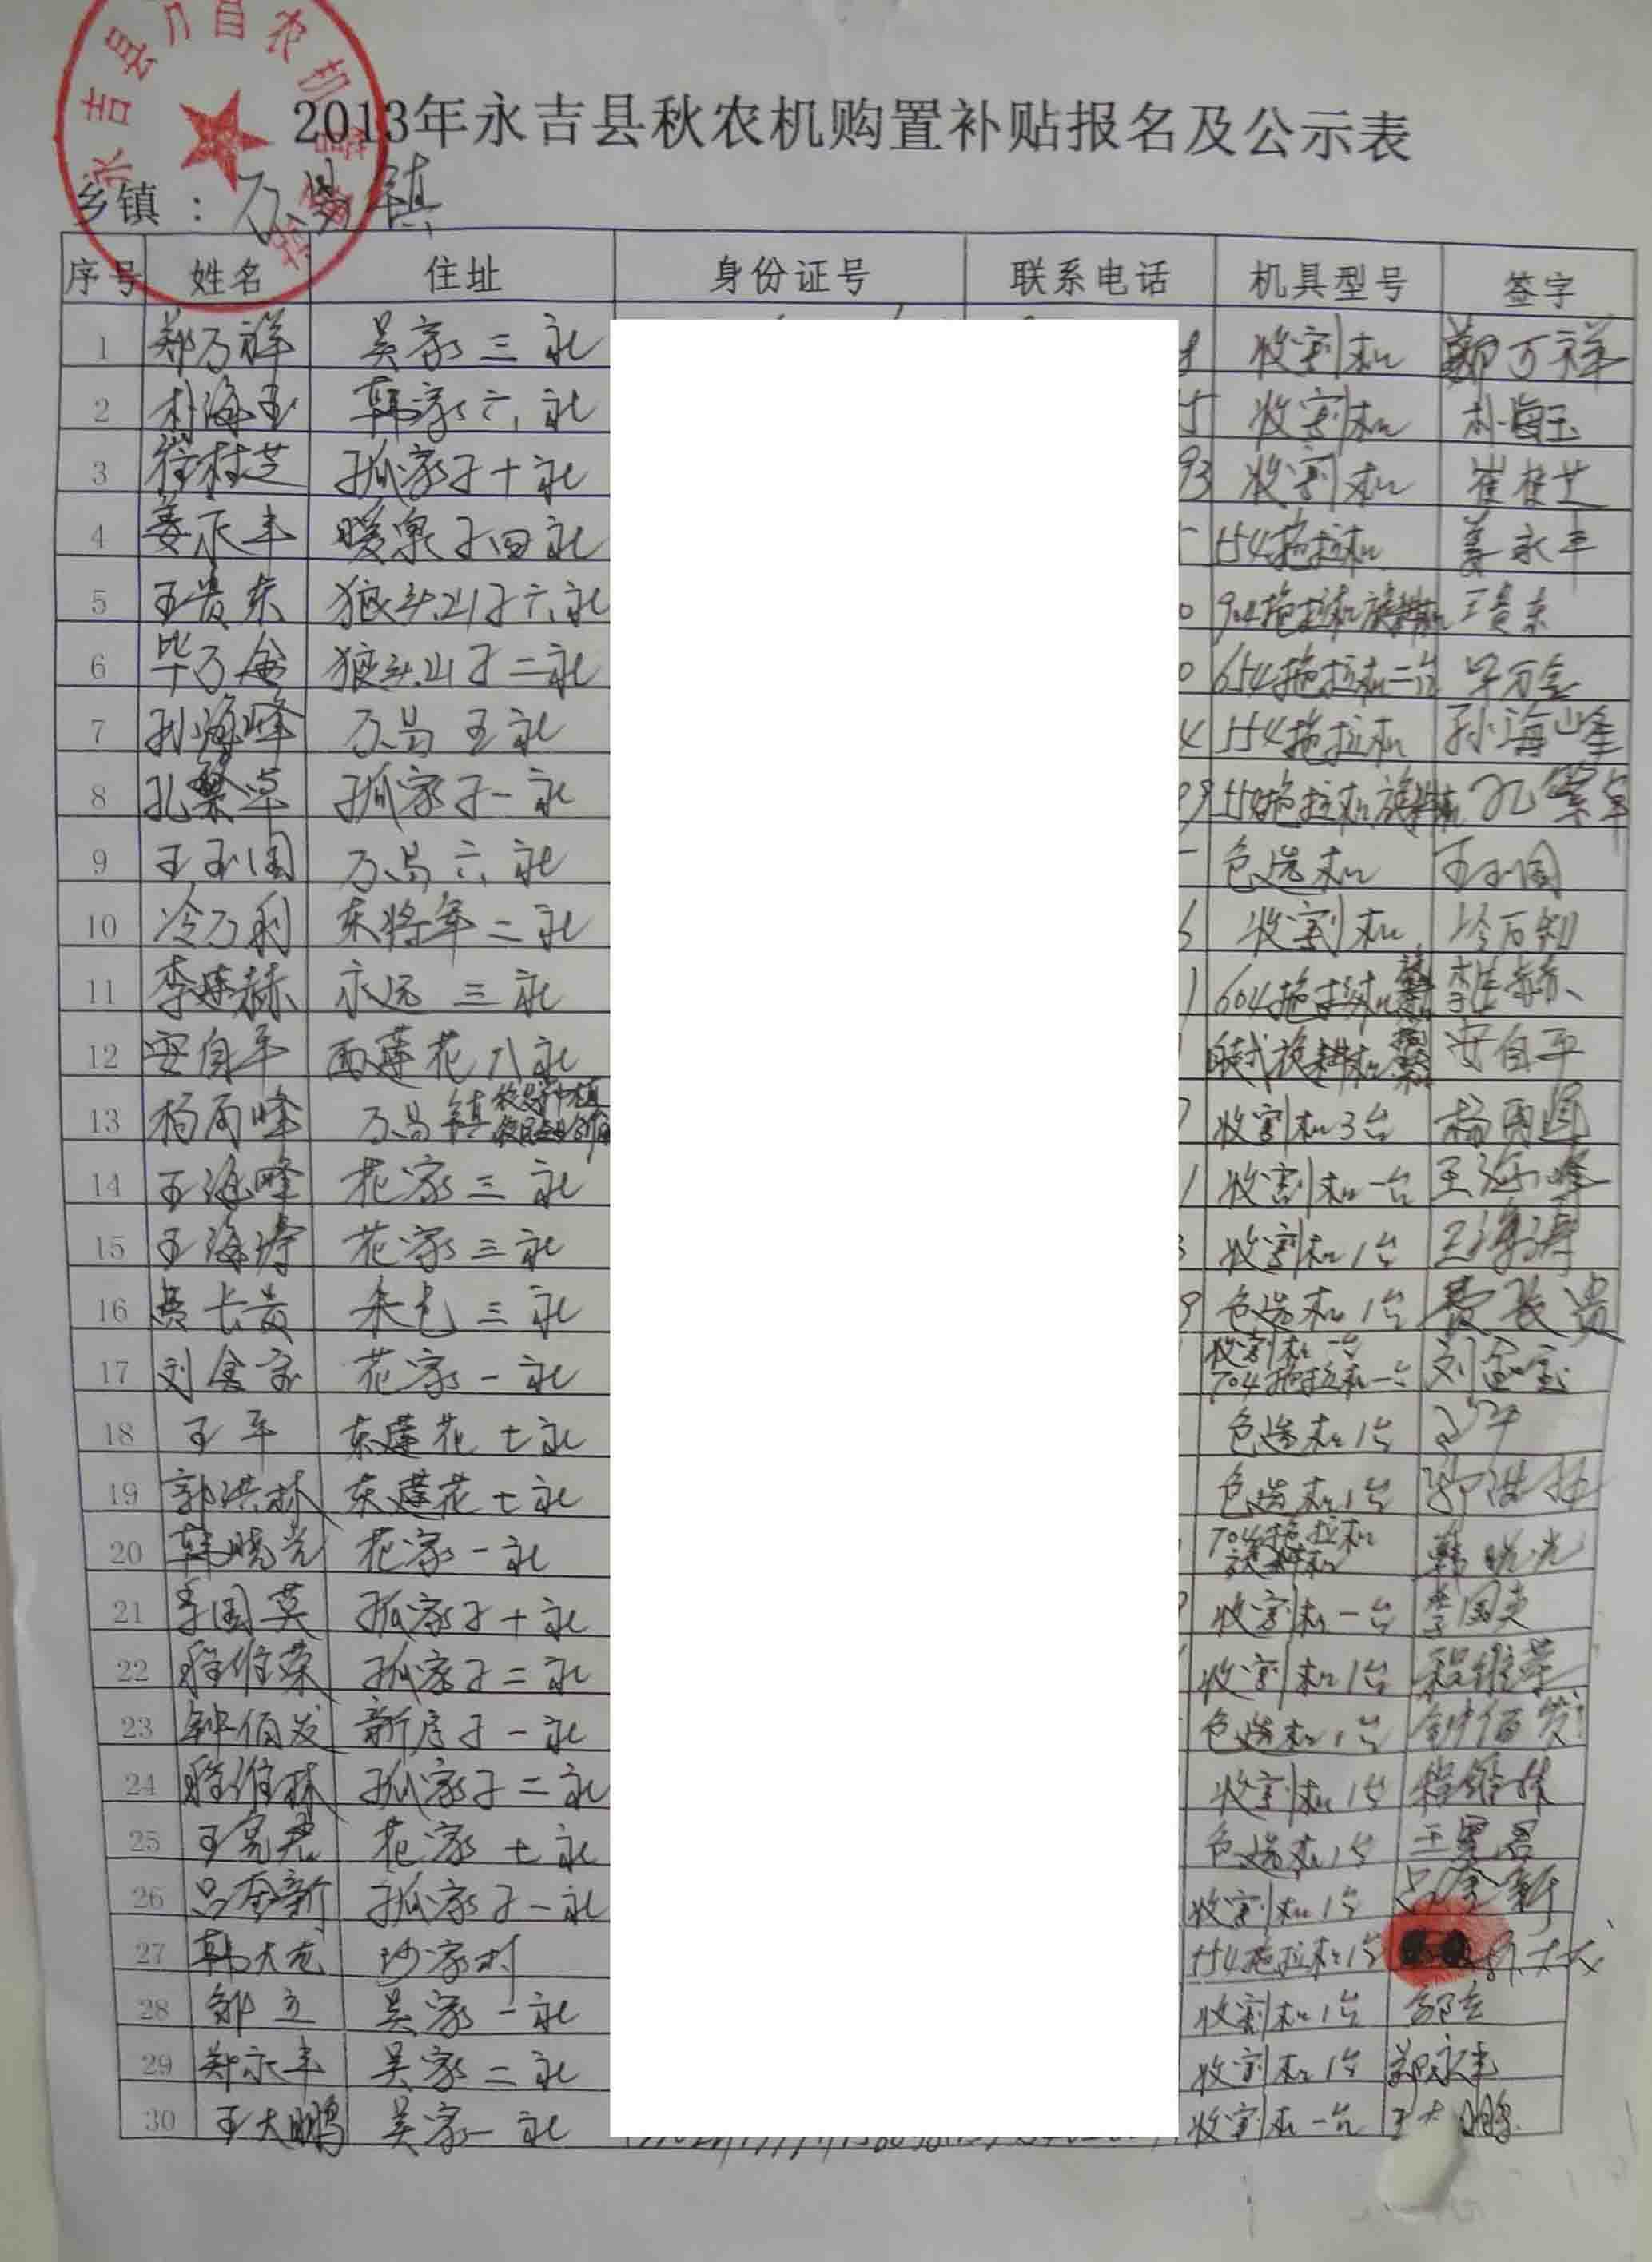 2013年永吉县秋农机购置补贴报名及公示表
乡镇：万昌镇
序号 姓名 住址 身份证号 联系电话 机具型号 签字
1 郑万祥 吴家三社 收割机 郑万祥
2 朴海玉 韩家六社 5 收割机 朴海玉
3 崔桂芝 孤家子十社 93 收割机 崔桂芝
4 姜永丰 暖泉子四社 554拖拉机 姜永丰
5 王贵东 狼头山子六社 0 904拖拉机旋耕机 王贵东
6 毕万金 狼头山子二社 0 654拖拉机一台 毕万金
7 孙海峰 万昌五社 4 554拖拉机 孙海峰
8 孔繁卓 孤家子一社 09 554拖拉机旋耕机 孔繁卓
9 王玉国 万昌六社 色选机 王玉国
10 冷万利 东将军二社 收割机 冷万利
11 李建赫 永远三社 1 604拖拉机 李建赫
12 安自平 西莲花八社 旋耕机 安自平
13 杨丙峰 万昌镇 7 收割机3台
14 王海峰 花家三社 1 收割机一台 王海峰
15 王海涛 花家三社 收割机1台 王海涛
16 费长贵 朱屯三社 9 色选机1台 费长贵
17 刘金宝 花家一社 收割机一台 704拖拉机一台 刘金宝
18 王平 东莲花七社 色选机1台 王平
19 郭洪林 东莲花七社 色选机1台 郭洪林
20 韩晓光 花家一社 704拖拉机 旋耕机 韩晓光
21 李国英 孤家子十社 收割机一台 李国英
22 程维荣 孤家子二社 收割机1台 程维荣
23 钟佰发 新房子一社 色选机1台 钟佰发
24 程维林 孤家子二社 收割机1台 程维林
25 花家七社 色选机1台
26 吕奎新 孤家子一社 收割机1台 吕奎新
27 韩大龙 沙家村 554拖拉机1台
28 邹立 吴家一社 收割机1台 邹立
29 郑永丰 吴家二社 收割机1台 郑永丰
30 王大鹏 吴家一社 收割机一台 王大鹏